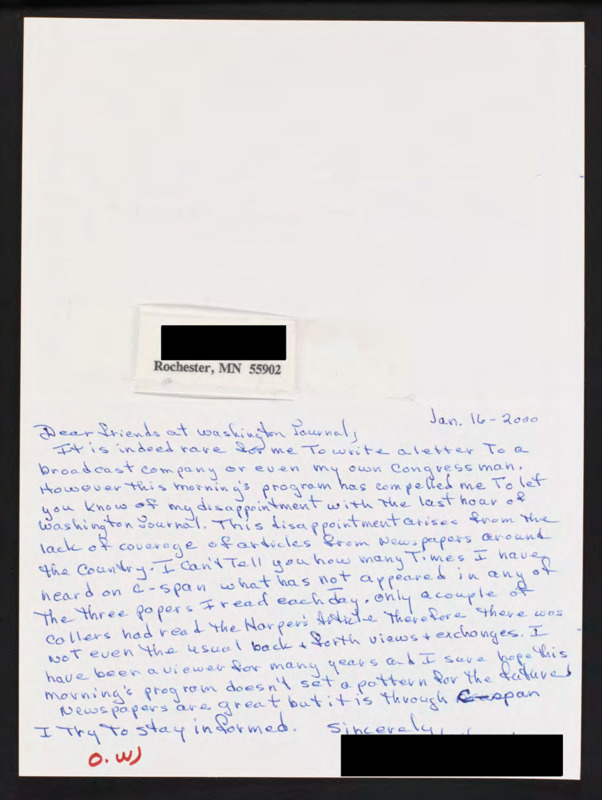 Rochester, MN 55902
Jan. 16-2000
Dear friends at Washington Journal,
It is indeed rare for me To write a letter To a
broadcast company or even my own Congressman.
However this morning's program has compelled me To let
you know of my disappointment with the last hour of
Washington Journal. This disappointment arises from the
lack of coverage of articles from Newspapers around
the Country. I can't Tell you how many Times I have
heard on C-span what has not appeared in any of
The three papers I read each day. Only a couple of
callers had read the Harper's Article Therefore There was
not even the usual back + forth views + exchanges. I
have been a viewer for many years and I sure hope this
morning's program doesn't set a pattern for the future
Newspapers are great but it is Through C-span
I Try To stay informed. Sincerely,
O. WJ